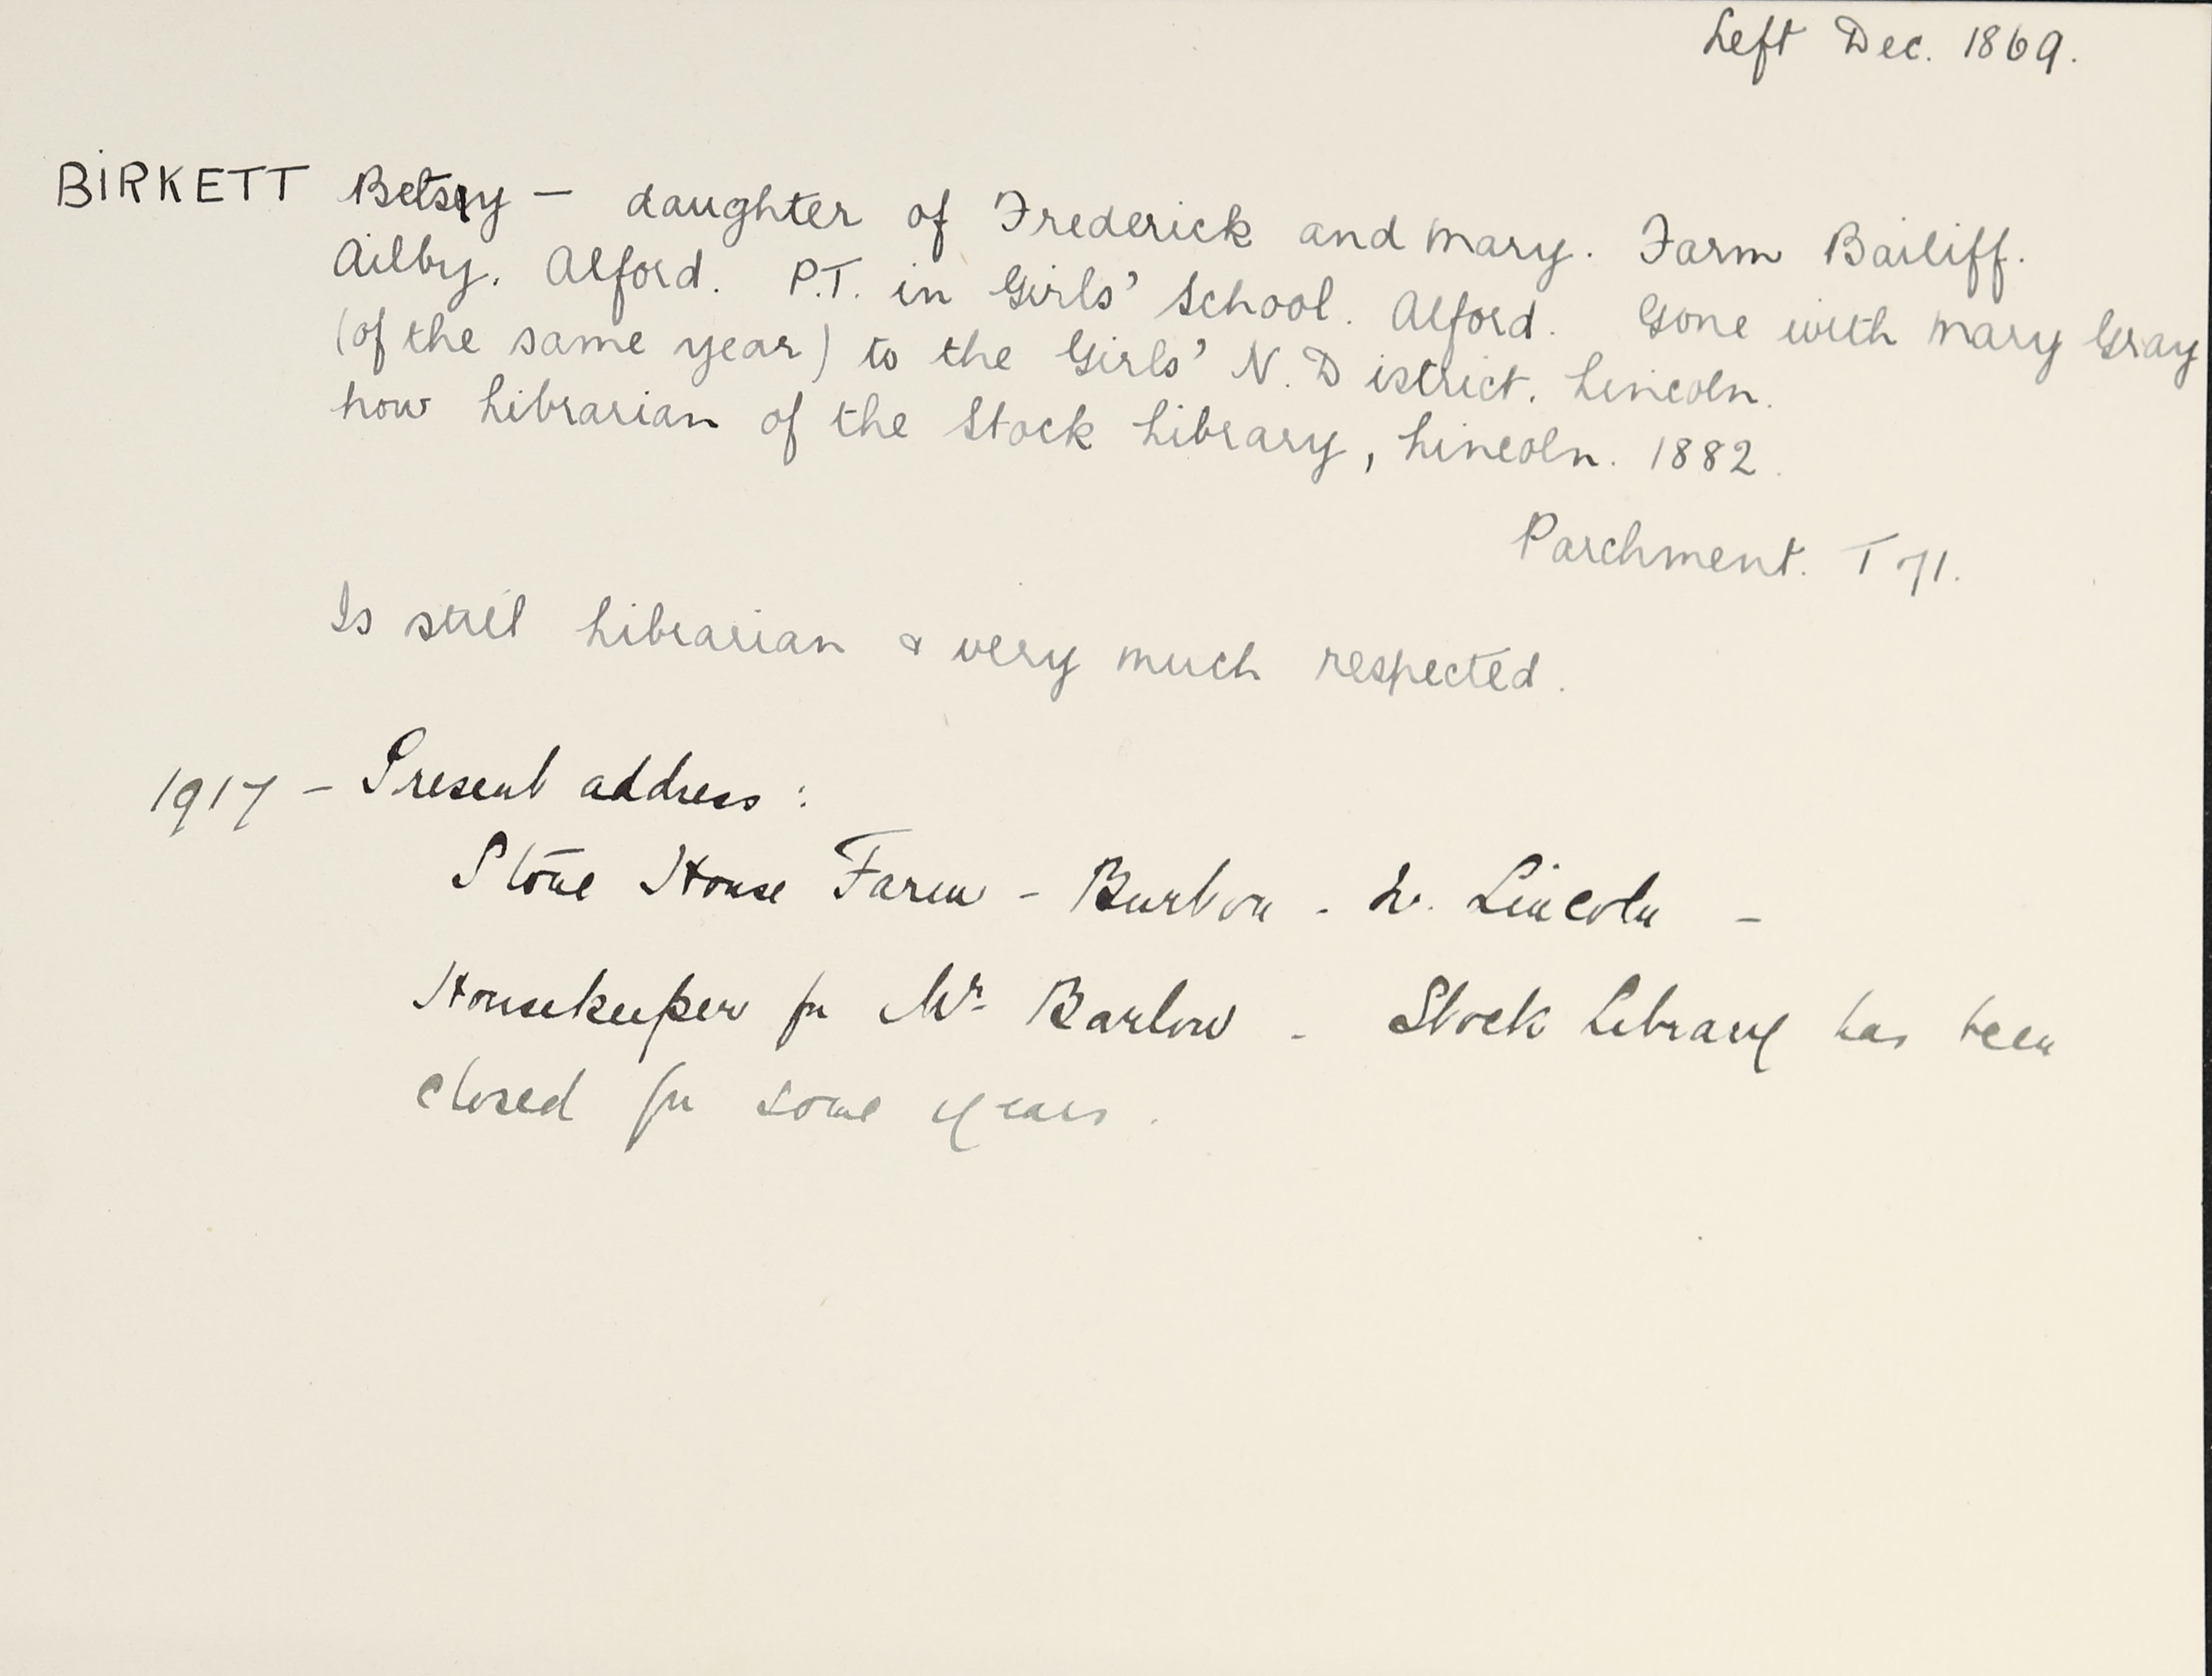 Left Dec. 1869.
BIRKETT Betsy — daughter of Frederick and Mary. Farm Bailiff.
Ailby. Alford. P.T. in Girls' School. Alford. Gone with Mary Gray
(of the same year) to the Girls' N. District. Lincoln.
now Librarian of the Stock Library, Lincoln. 1882.
Parchment. T 71.
Is still Librarian & very much respected.
1917 - Present address:
Stone House Farm - Burton - Lincoln -
Housekeeper for Mr Barlow - Stock Library has been
closed for some years.